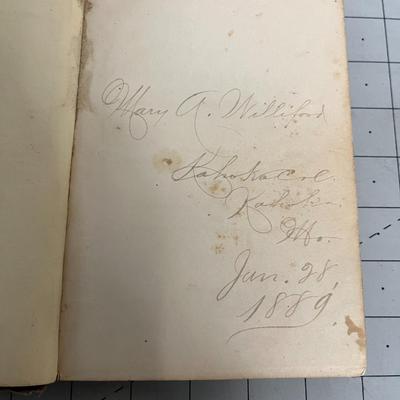 Mary A. Williford
Kahoka Col.
Kahoka
Mo.
Jan. 28,
1889.